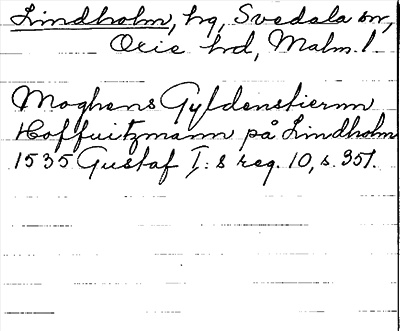 Lindholm, hg, Svedala sn,
Oxie hd, Malm. l.
Moghens Gyldenstiernn
Hoffuitzmann på Lindholm
1535 Gustaf I:s reg. 10, s. 351.